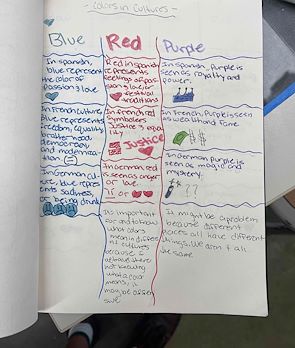 - Colors in Cultures -
Blue
In spanish,
blue represent
the color of
passion & love
In French culture
Blue represents
freedom, equality,
brotherhood,
democracy,
and
In German cul
ure, blue repre
sents sadness,
or being drunk
Red
Red in spanish
represents
feelings of pas-
sion & love, or
festival
traditions
in french, red
symbolizes
Justice & equa
lity
Justice
In German red
is seen as anger
or love.
!! or
Its important
for
what colors
mean in differe
nt cultures
because
not knowing
what a color
means, it
may be offen
sive
Purple
In Spanish, Purple is
seen as royalty and
power.
In french, Purple is seen
as wealth and fame.
$$
In German purple is
seen as magic and
mystery.
??
It might be a problem
because different
places all have different
things. We don't all
be same